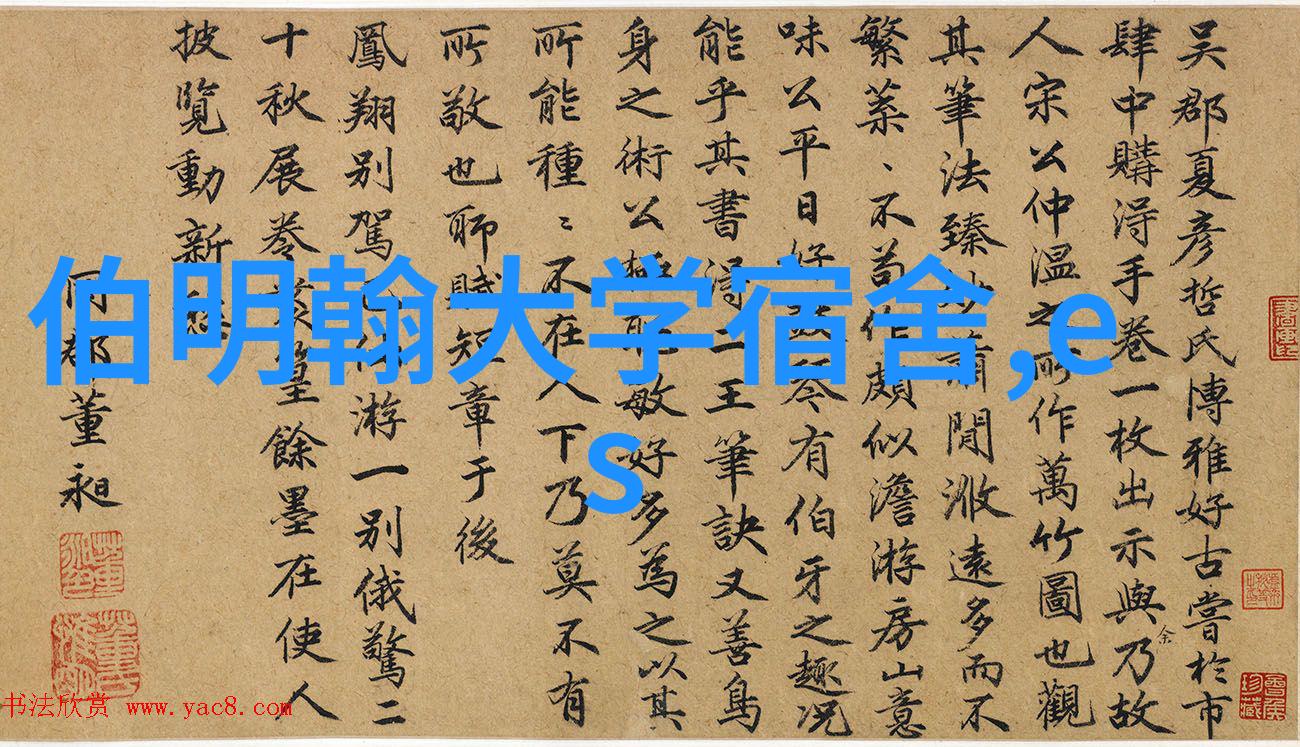 吴郡夏彦哲氏博雅好古嘗於市
肆中購得手卷一枚出示與乃故
余
人宋公仲温之所作萬竹圖也觀
其筆法臻妙 閒滌遠多而不
繁蕪、不苟作頗似澹游房山意
味公平日好 琴有伯牙之趣况
能乎其書得二王筆訣又善鳥
身之術公 敏好多為之以其
所能種〻不在人下乃莫不有
所敬也聊賦短章于後
鳳翔别駕 游一别俄驚二
十秋展卷 篁餘墨在使人
披覽動新
河郡董昶
伯明翰大学宿舍,e
s
书法欣赏 www.yac8.com